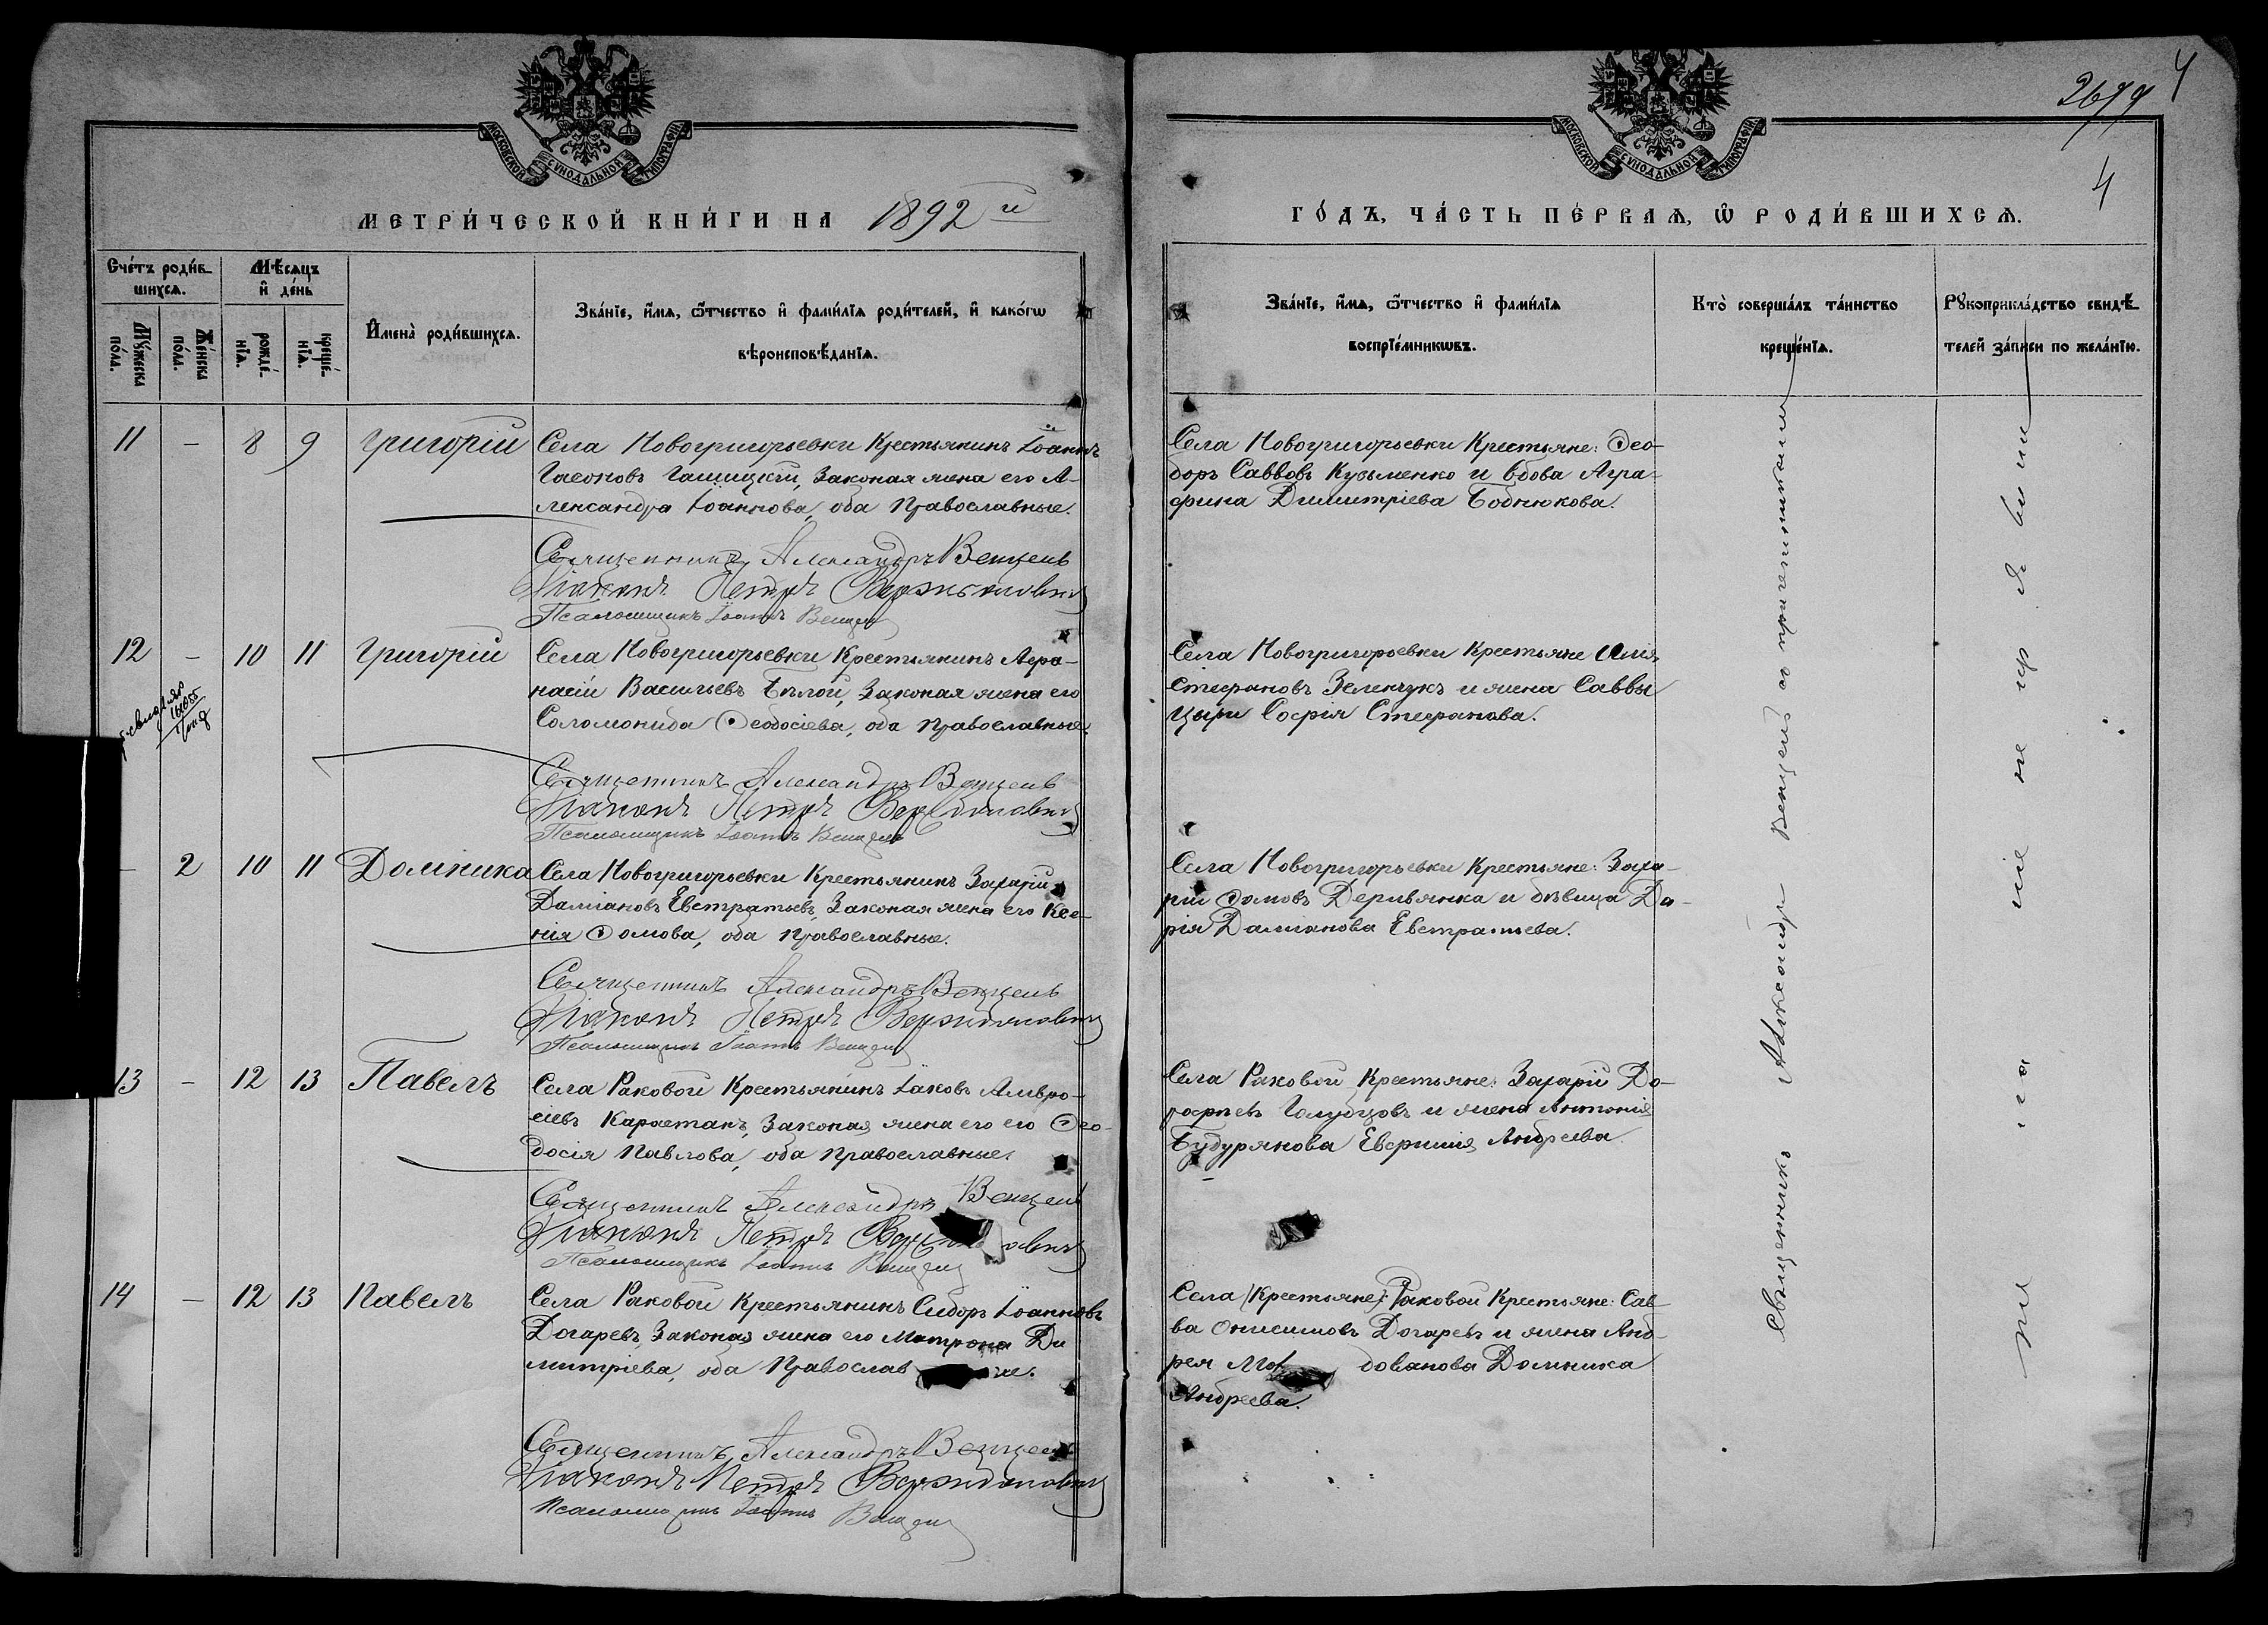 2699 4
4
МОСКОВСКОЙ СѴНОДАЛЬНОЙ ТИПОГРАФІИ
МОСКОВСКОЙ СѴНОДАЛЬНОЙ ТИПОГРАФІИ
МЕТРИ́ЧЕСКОЙ КНИ́ГИ НА 1892 й
ГО́ДЪ, ЧА́СТЬ ПЕ́РВАѦ, Ѿ РОДИ́ВШИХСѦ.
Сче́тъ роди́в-
шихсѧ.
Мѣ́сѧцъ
и҆ де́нь
Му́жеска по́ла.
Же́нска по́ла.
рожде́-нїѧ.
креще́-нїѧ.
И҆мена̀ роди́вшихсѧ.
Зва́нїе, и҆́мѧ, ѻ҆́тчество и҆ фами́лїѧ роди́телей, и҆ како́гѡ
вѣроисповѣ́данїѧ.
Зва́нїе, и҆́мѧ, ѻ҆́тчество и҆ фами́лїѧ
воспрїе́мникѡвъ.
Кто̀ соверша́лъ та́инство
креще́нїѧ.
Рꙋкоприкла́дство свидѣ́-
телей за́писи по жела́нїю.
11 - 8 9 Григорій
Села Новогригорьевки Крестьянинъ Іоаннъ
Гашицкій, Законая жена его А-
лександра Іоаннова, оба Православные.
Священникъ Александръ Венцель
Діаконъ Петръ
Псаломщикъ Іоаннъ
Села Новогригорьевки Крестьяне: Ѳео-
доръ Саввовъ Кузьменко и вдова Агра-
фина Димитріева Боднюкова.
12 - 10 11 Григорій
Села Новогригорьевки Крестьянинъ Аѳа-
насій Васильевъ Бѣлой, Законая жена его
Соломонида Ѳеодосіева, оба Православные.
Священникъ Александръ Венцель
Діаконъ Петръ
Псаломщикъ Іоаннъ
Села Новогригорьевки Крестьяне Илія
Стефановъ Зеленчукъ и жена Саввы
Цыри Софія Стефанова.
- 2 10 11 Домника
Села Новогригорьевки Крестьянинъ Захарій
Даміановъ Евстратьевъ, Законая жена его Ксе-
нія Ѳомова, оба Православные.
Священникъ Александръ Венцель
Діаконъ Петръ
Псаломщикъ Іоаннъ
Села Новогригорьевки Крестьяне: Заха-
рій Ѳомовъ Деривянка и дѣвица Да-
рія Даміанова Евстратьева.
13 - 12 13 Павелъ
Села Раковой Крестьянинъ Іаковъ Амвро-
сіевъ Карастанъ, Законая жена его его Ѳео-
досія Павлова, оба Православные.
Священникъ Александръ Венцель
Діаконъ Петръ
Псаломщикъ Іоаннъ
Села Раковой Крестьяне: Захарій До-
рофѣевъ Голубцовъ и жена Антонія
Будурянова Евфимія Андреева.
14 - 12 13 Павелъ
Села Раковой Крестьянинъ Сидоръ Іоанновъ
Догаревъ, Законая жена его Матрона Ди
митріева, оба Православ
Священникъ Александръ Венцель
Діаконъ Петръ
Псаломщикъ Іоаннъ
Села (Крестьяне): Раковой Крестьяне: Сав-
ва Онисимовъ Догаревъ и жена Анд-
рея дованова Домника
Андреева.
Священникъ Александръ Венцель со причетниками